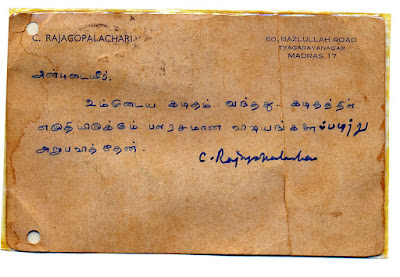 C. RAJAGOPALACHARI
60, BAZLULLAH ROAD
TYAGARAYANAGAR
MADRAS 17
அன்புடையீர்,
உம்முடைய கடிதம் வந்தது. கடிதத்தில்
எழுதியிருக்கும் பலரசமான விஷயங்களைப்படித்து
அனுபவித்தேன்.
C. Rajagopalachari